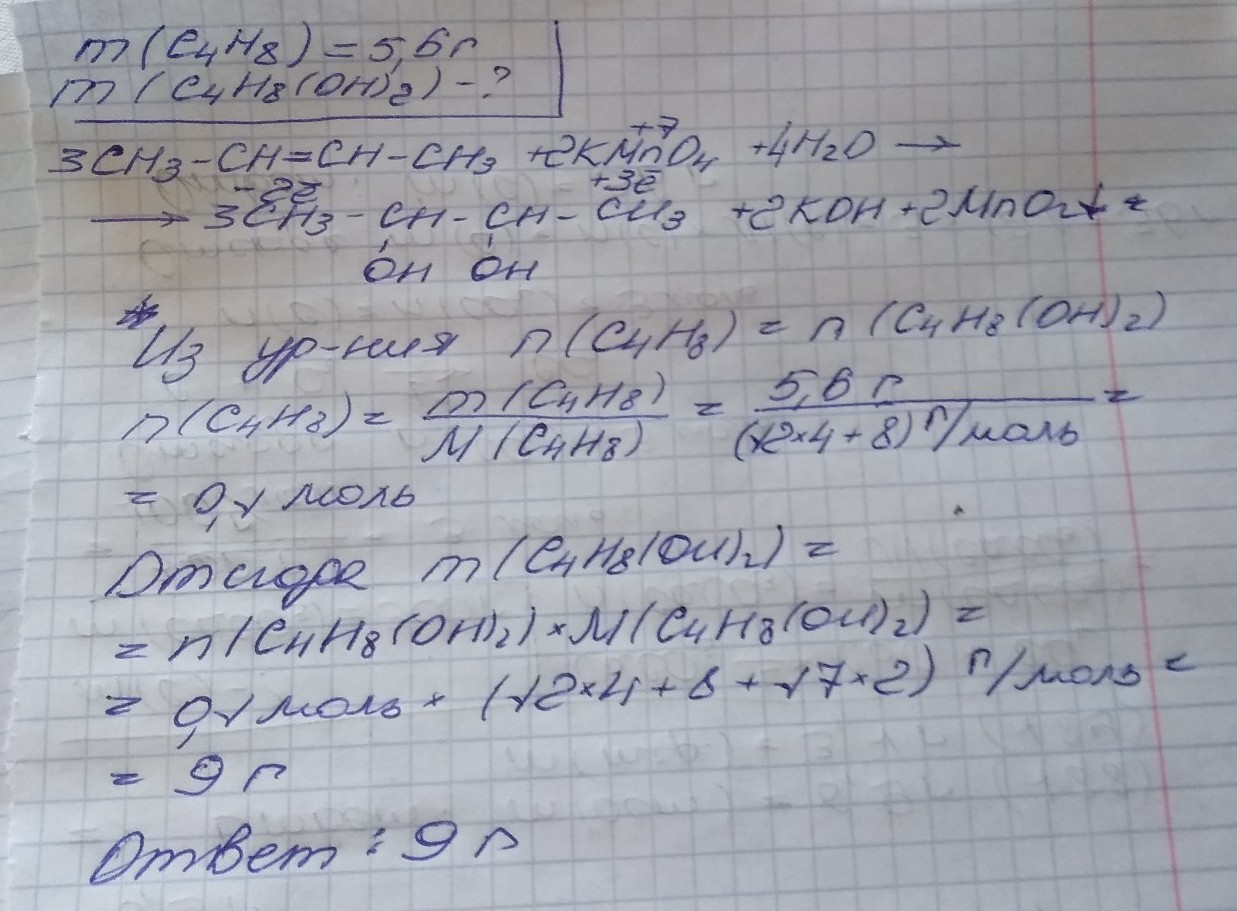 m(C₄H₈) = 5,6 г
m(C₄H₈(OH)₂) - ?
+7
3CH₃-CH=CH-CH₃ +2KMnO₄ +4H₂O →
-2ē +3ē
→ 3CH₃-CH-CH-CH₃ +2KOH+2MnO₂↓
OH OH
Из ур-ния n(C₄H₈) = n(C₄H₈(OH)₂)
n(C₄H₈) = m(C₄H₈) / M(C₄H₈) = 5,6 г / (12×4+8) г/моль =
= 0,1 моль
Отсюда m(C₄H₈(OH)₂) =
= n(C₄H₈(OH)₂)×M(C₄H₈(OH)₂) =
= 0,1 моль × (12×4+8+17×2) г/моль =
= 9 г
Ответ: 9 г